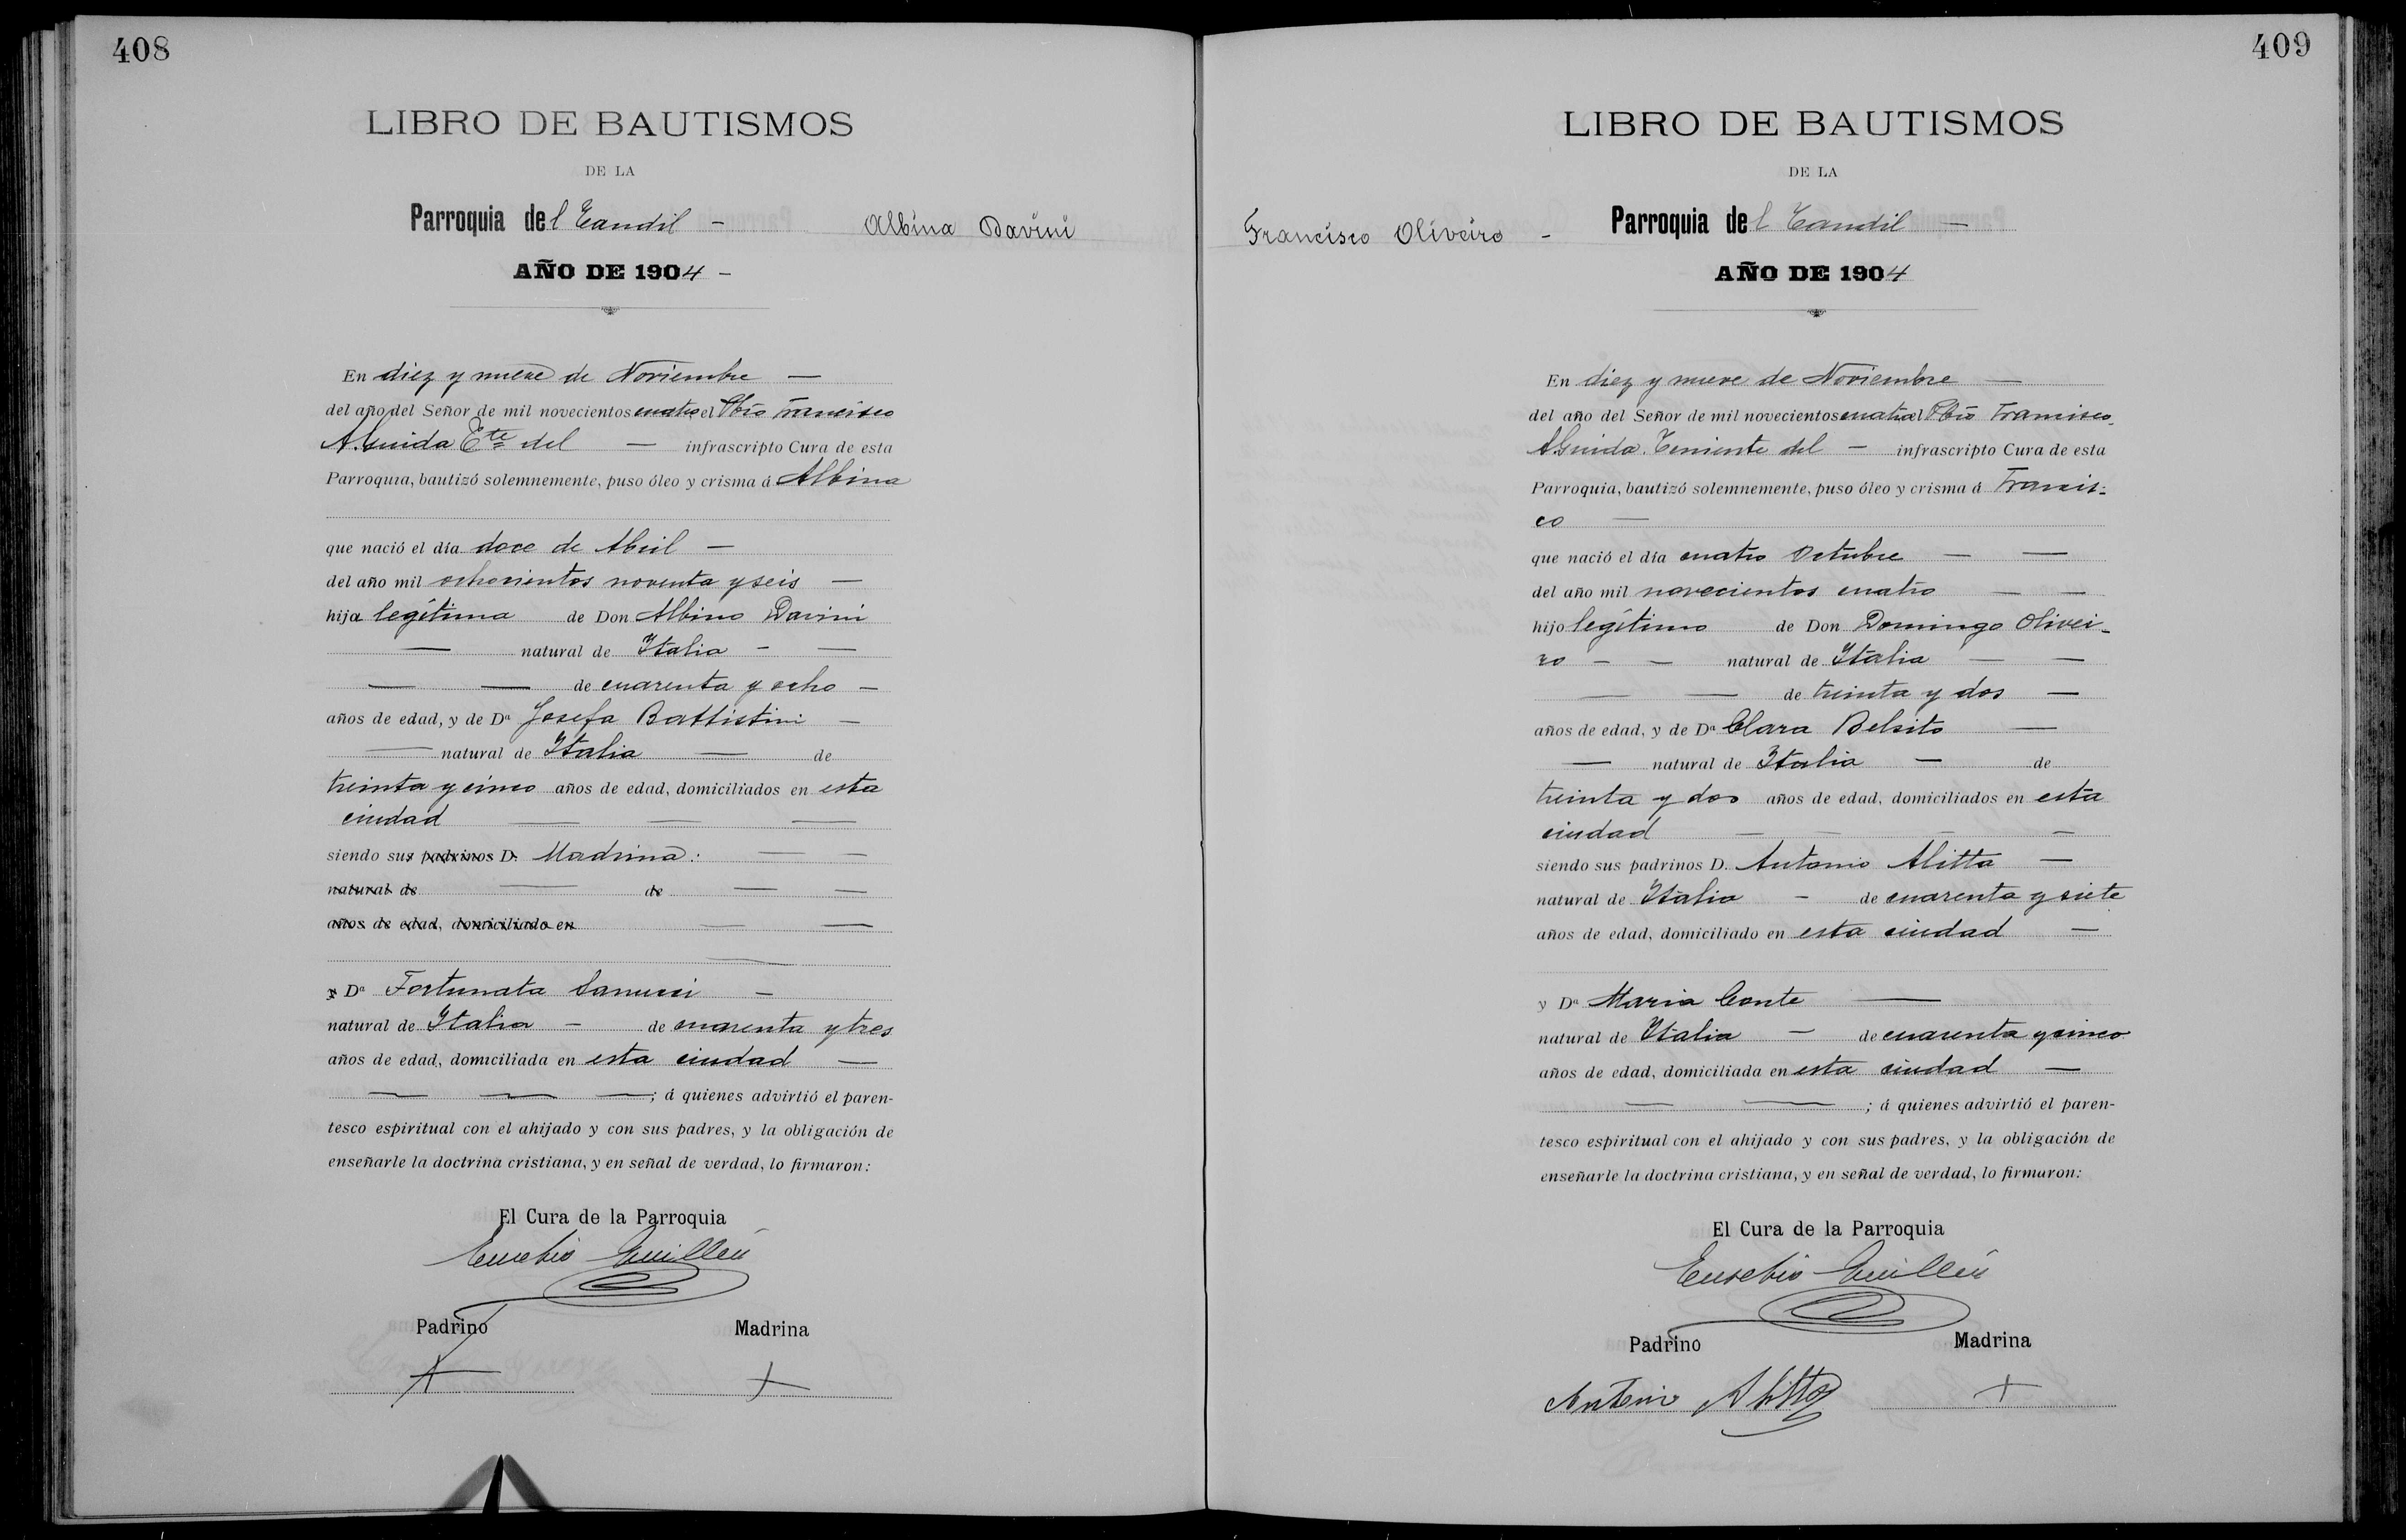 408
LIBRO DE BAUTISMOS
DE LA
Parroquia del Tandil -
Albina Davini
AÑO DE 1904 -
En diez y nueve de Noviembre —
del año del Señor de mil novecientos cuatro el Pbro Francisco
A. Guida Tte del — infrascripto Cura de esta
Parroquia, bautizó solemnemente, puso óleo y crisma á Albina
que nació el día doce de Abril —
del año mil ochocientos noventa y seis —
hija legítima de Don Albino Davini
— natural de Italia - —
— — de cuarenta y ocho —
años de edad, y de Dª Josefa Battistini —
— natural de Italia — de
treinta y cinco años de edad, domiciliados en esta
ciudad — — —
siendo sus padrinos D. Madrina: — —
natural de — de — —
años de edad, domiciliado en — —
—
y Dª Fortunata Sanucci —
natural de Italia — de cuarenta y tres
años de edad, domiciliada en esta ciudad —
— — —; á quienes advirtió el paren-
tesco espiritual con el ahijado y con sus padres, y la obligación de
enseñarle la doctrina cristiana, y en señal de verdad, lo firmaron:
El Cura de la Parroquia
Eusebio Guillén
Padrino Madrina
+ +
409
LIBRO DE BAUTISMOS
DE LA
Francisco Oliveiro -
Parroquia del Tandil —
AÑO DE 1904
En diez y nueve de Noviembre —
del año del Señor de mil novecientos cuatro el Pbro Francisco
A Guida Teniente del — infrascripto Cura de esta
Parroquia, bautizó solemnemente, puso óleo y crisma á Francis-
co —
que nació el día cuatro Octubre — —
del año mil novecientos cuatro — —
hijo legítimo de Don Domingo Olivei-
ro - - natural de Italia — —
— — de treinta y dos —
años de edad, y de Dª Clara Belsito —
— natural de Italia — de
treinta y dos años de edad, domiciliados en esta
ciudad — — — —
siendo sus padrinos D. Antonio Alitta —
natural de Italia - de cuarenta y siete
años de edad, domiciliado en esta ciudad —
y Dª Maria Conte —
natural de Italia — de cuarenta y cinco
años de edad, domiciliada en esta ciudad —
— —; á quienes advirtió el paren-
tesco espiritual con el ahijado y con sus padres, y la obligación de
enseñarle la doctrina cristiana, y en señal de verdad, lo firmaron:
El Cura de la Parroquia
Eusebio Guillén
Padrino Madrina
Antonio Alitta +